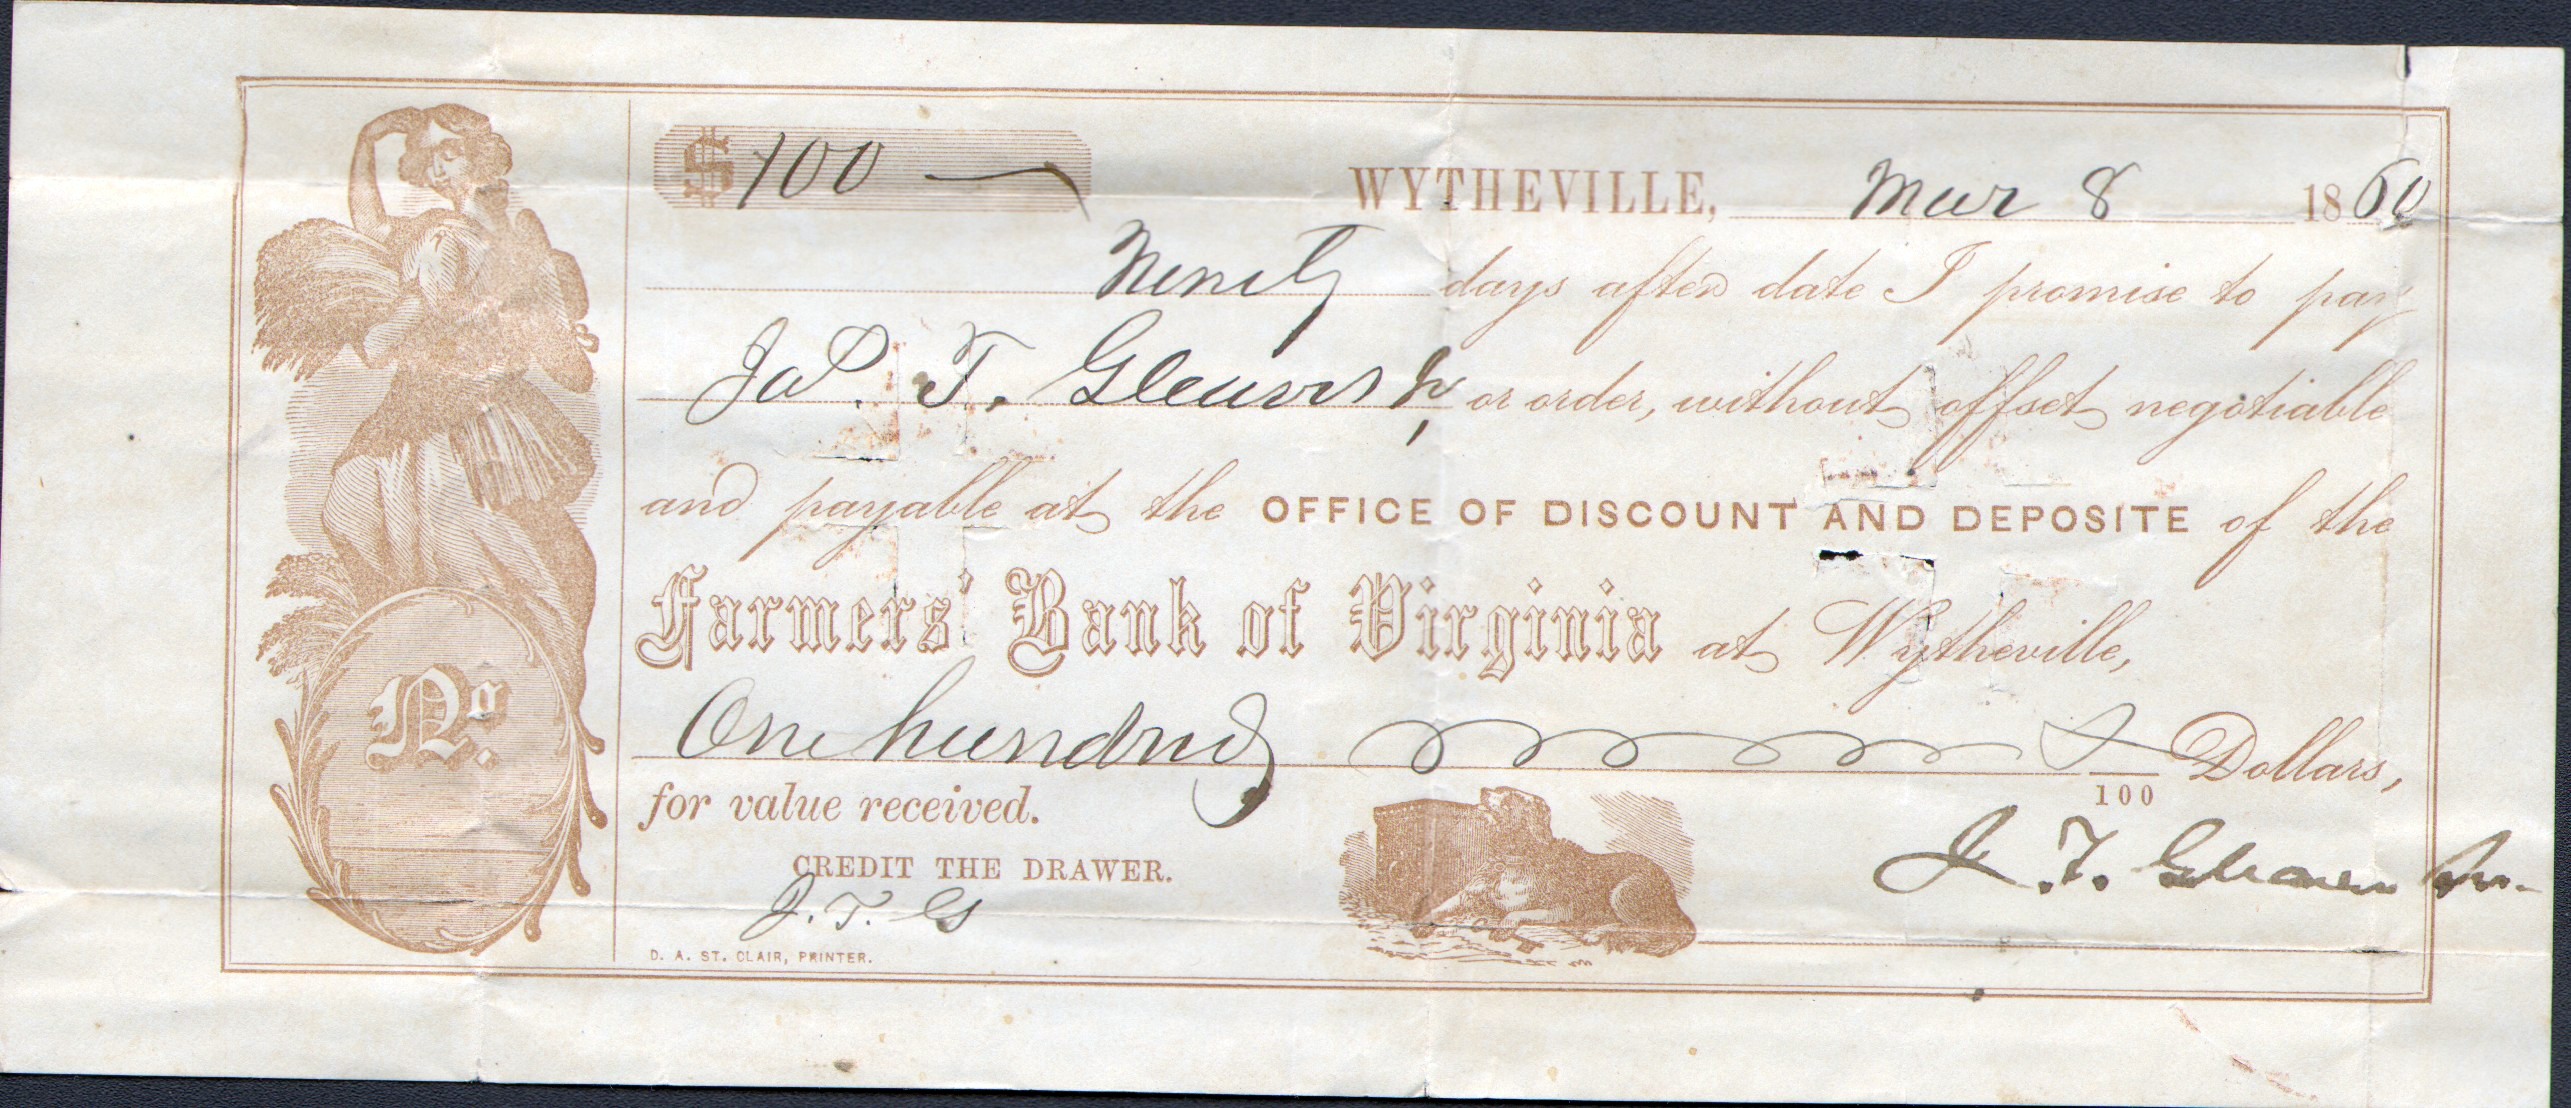 $ 100 —
WYTHEVILLE, Mar 8 1860
Ninety days after date I promise to pay
Jas. T. Gleaves Jr or order, without offset negotiable
and payable at the OFFICE OF DISCOUNT AND DEPOSITE of the
Farmers' Bank of Virginia at Wytheville,
One hundred /100 Dollars,
for value received.
CREDIT THE DRAWER.
J. T. G
J. T. Gleaves Jr.
No.
D. A. ST. CLAIR, PRINTER.